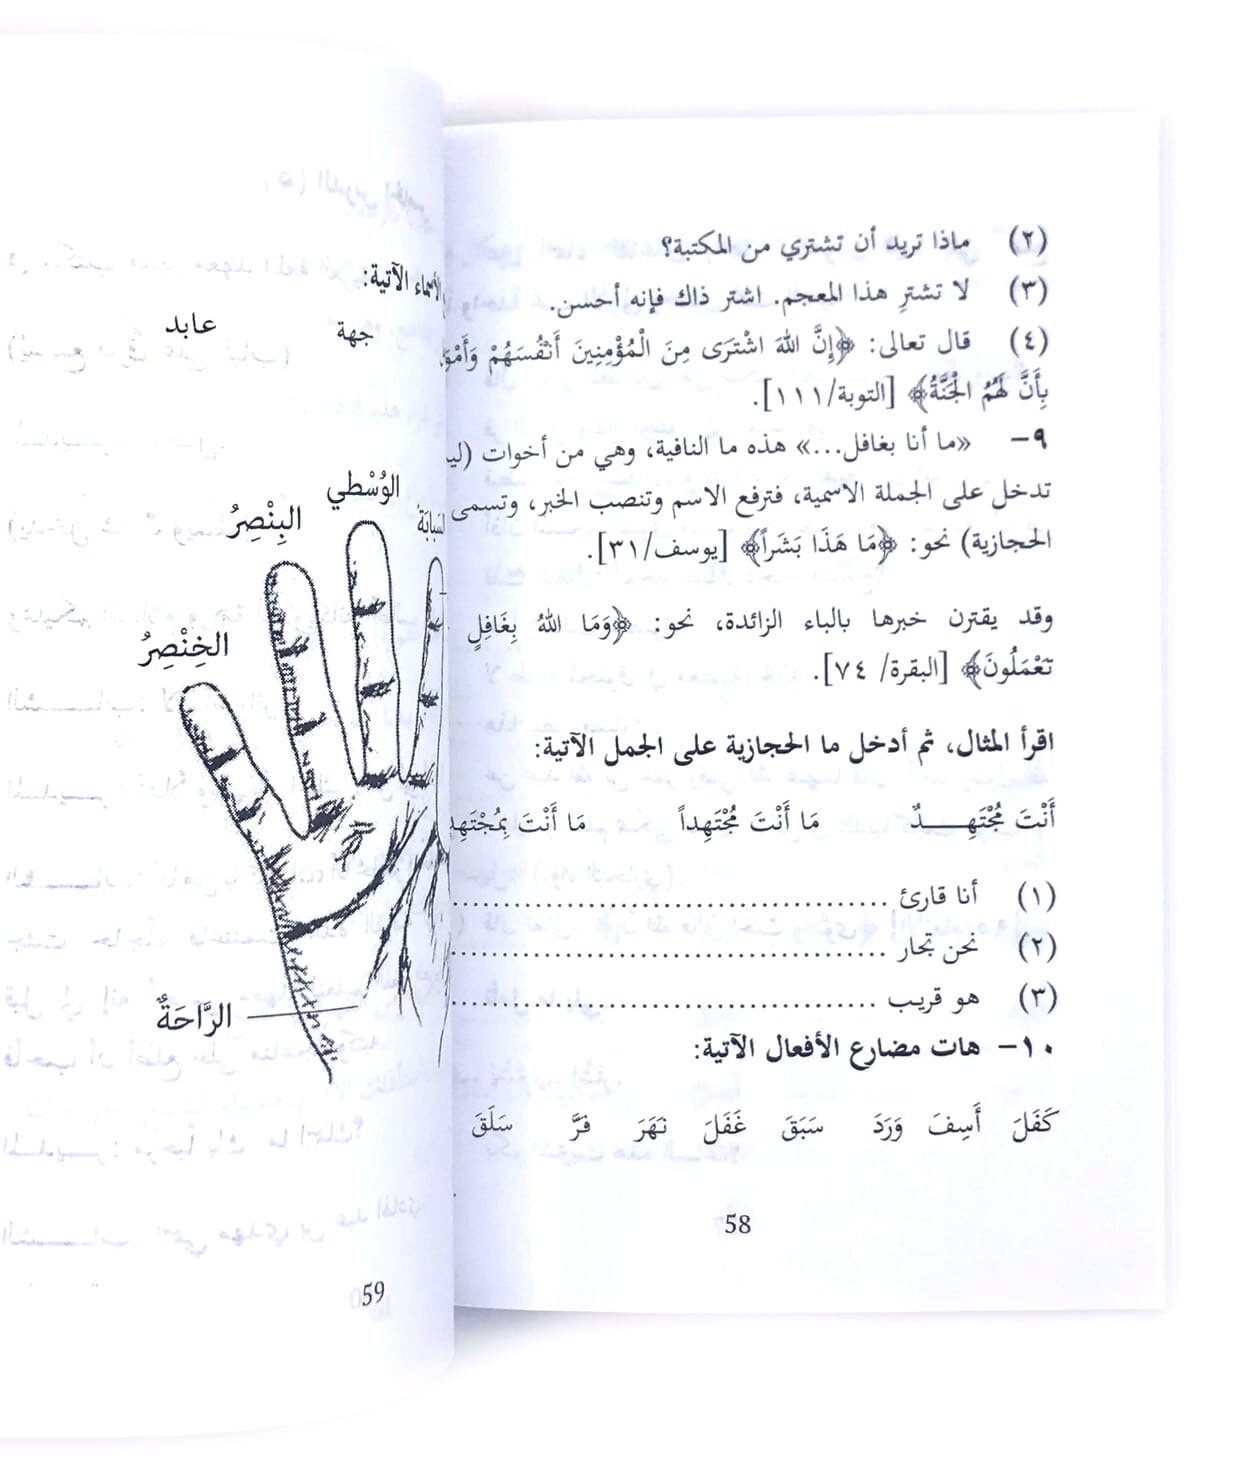 (٢) ماذا تريد أن تشتري من المكتبة؟
(٣) لا تشترِ هذا المعجم. اشتر ذاك فإنه أحسن.
(٤) قال تعالى: ﴿إِنَّ اللهَ اشْتَرَى مِنَ الْمُؤْمِنِينَ أَنْفُسَهُمْ
بِأَنَّ لَهُمُ الْجَنَّةُ﴾ [التوبة/١١١].
٩– «ما أنا بغافل...» هذه ما النافية، وهي من أخوات
تدخل على الجملة الاسمية، فترفع الاسم وتنصب الخبر، وتسمى
الحجازية) نحو: ﴿مَا هَذَا بَشَراً﴾ [يوسف/٣١].
وقد يقترن خبرها بالباء الزائدة، نحو: ﴿وَمَا اللهُ بِغَافِلٍ
تَعْمَلُونَ﴾ [البقرة/ ٧٤].
اقرأ المثال، ثم أدخل ما الحجازية على الجمل الآتية:
أَنْتَ مُجْتَهِـــــدٌ مَا أَنْتَ مُجْتَهِداً مَا أَنْتَ
(١) أنا قارئ ........................................
(٢) نحن تجار ........................................
(٣) هو قريب ........................................
١٠– هات مضارع الأفعال الآتية:
كَفَلَ أَسِفَ وَرَدَ سَبَقَ غَفَلَ نَهَرَ فَرَّ سَلَقَ
58
الأسماء الآتية:
جهة عابد
الوُسْطي
البِنْصِرُ
الخِنْصِرُ
الرَّاحَةُ
59